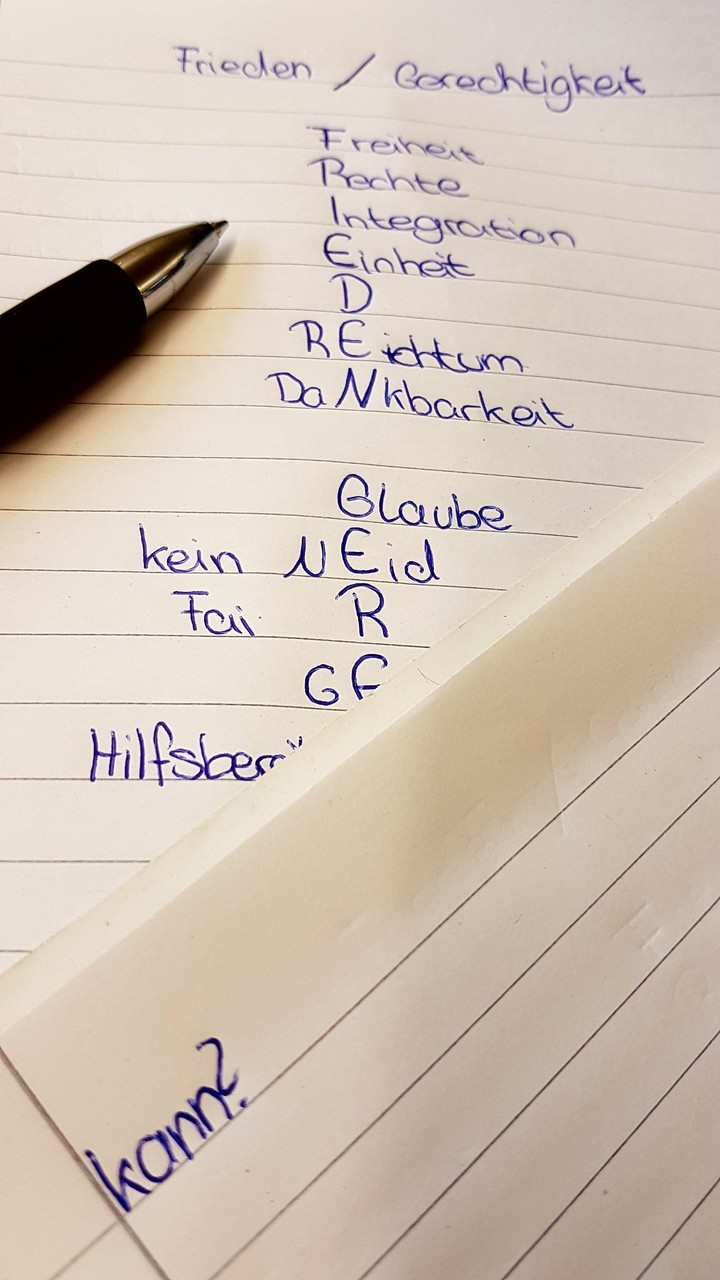 Frieden / Gerechtigkeit
Freiheit
Rechte
Integration
Einheit
D
REichtum
DaNkbarkeit
Glaube
kein NEid
Fai R
kann?